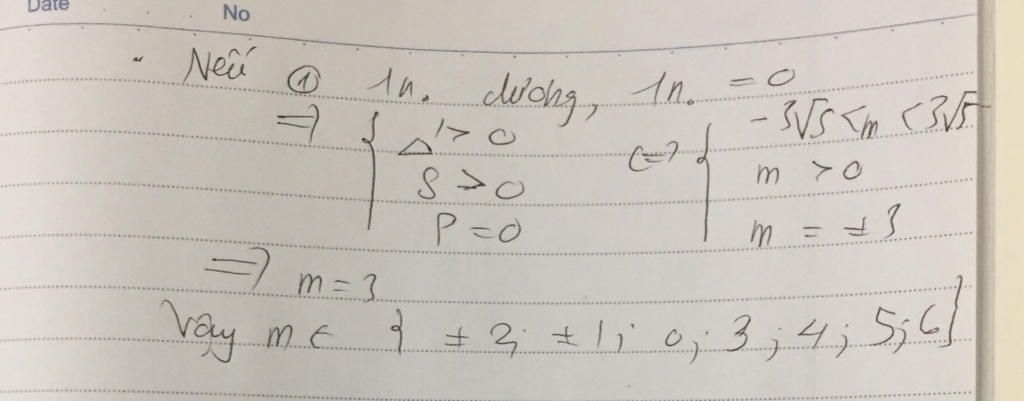 Date
No
- Nếu ① 1n. dương, 1n. = 0
=> { Δ' > 0 <=> { -3√5 < m < 3√5
S > 0 m > 0
P = 0 m = ±3
=> m = 3
Vậy m ∈ { ±2; ±1; 0; 3; 4; 5; 6}